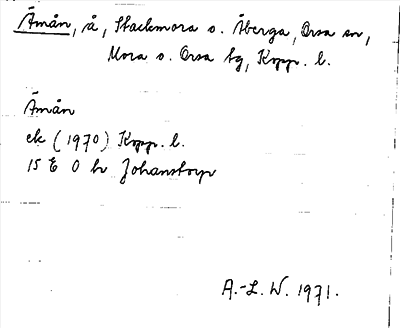 Åmån, å, Stackmora o. Åberga, Orsa sn,
Mora o. Orsa tg, Kopp. l.
Åmån
ek (1970) Kopp. l.
15 E 0 h Johanstorp
A.-L. W. 1971.